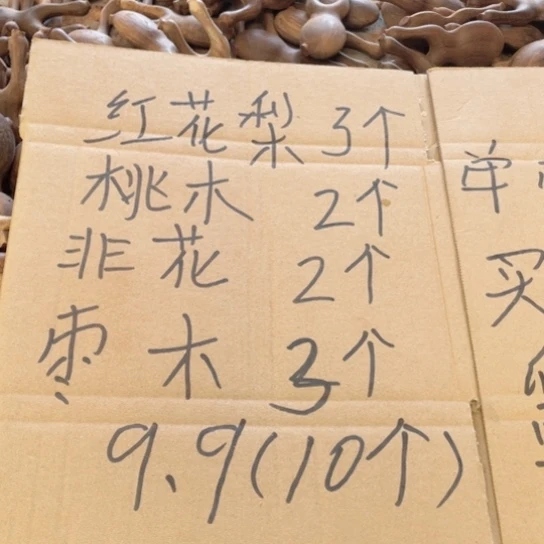 红花梨 3个
桃木 2个
非花 2个
枣木 3个
9.9(10个)
单
买